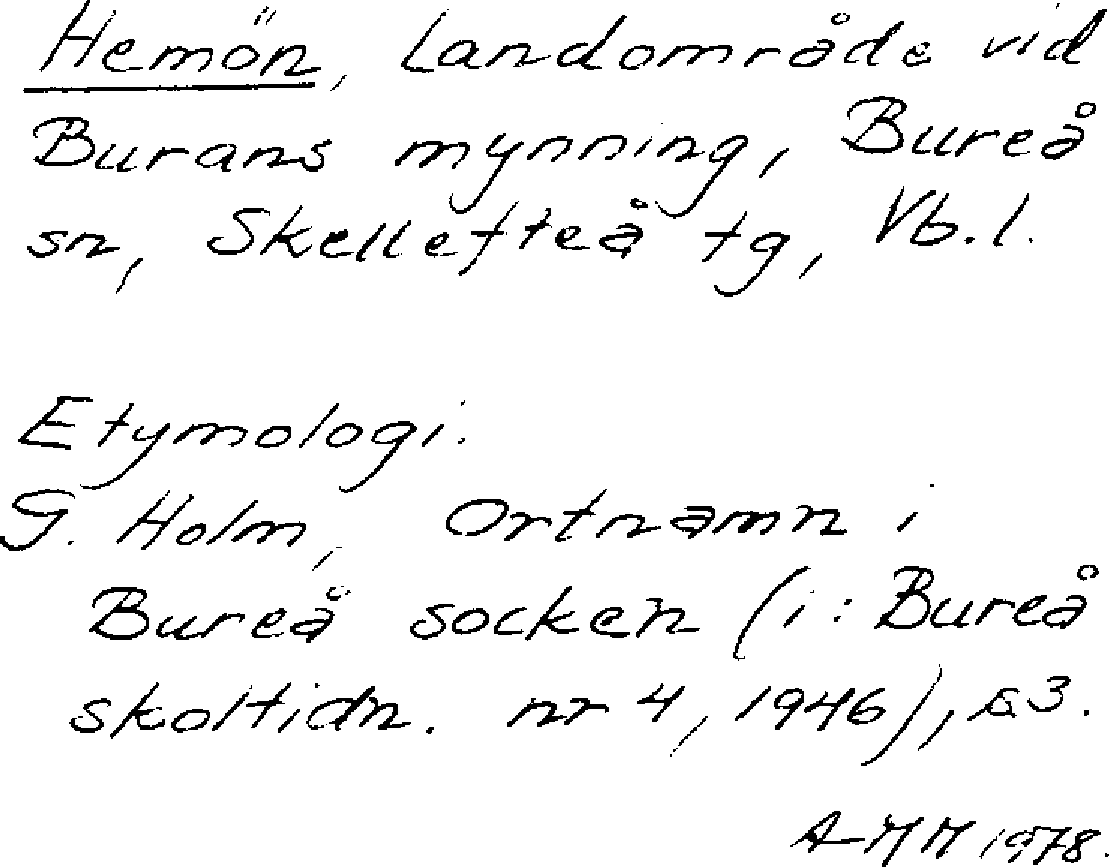 Hemön, Landområde vid
Burans mynning, Bureå
sn, Skellefteå tg, Vb.l.
Etymologi:
G. Holm, Ortnamn i
Bureå socken (i: Bureå
skoltidn. nr 4, 1946), s 3.
A-MM 1978.